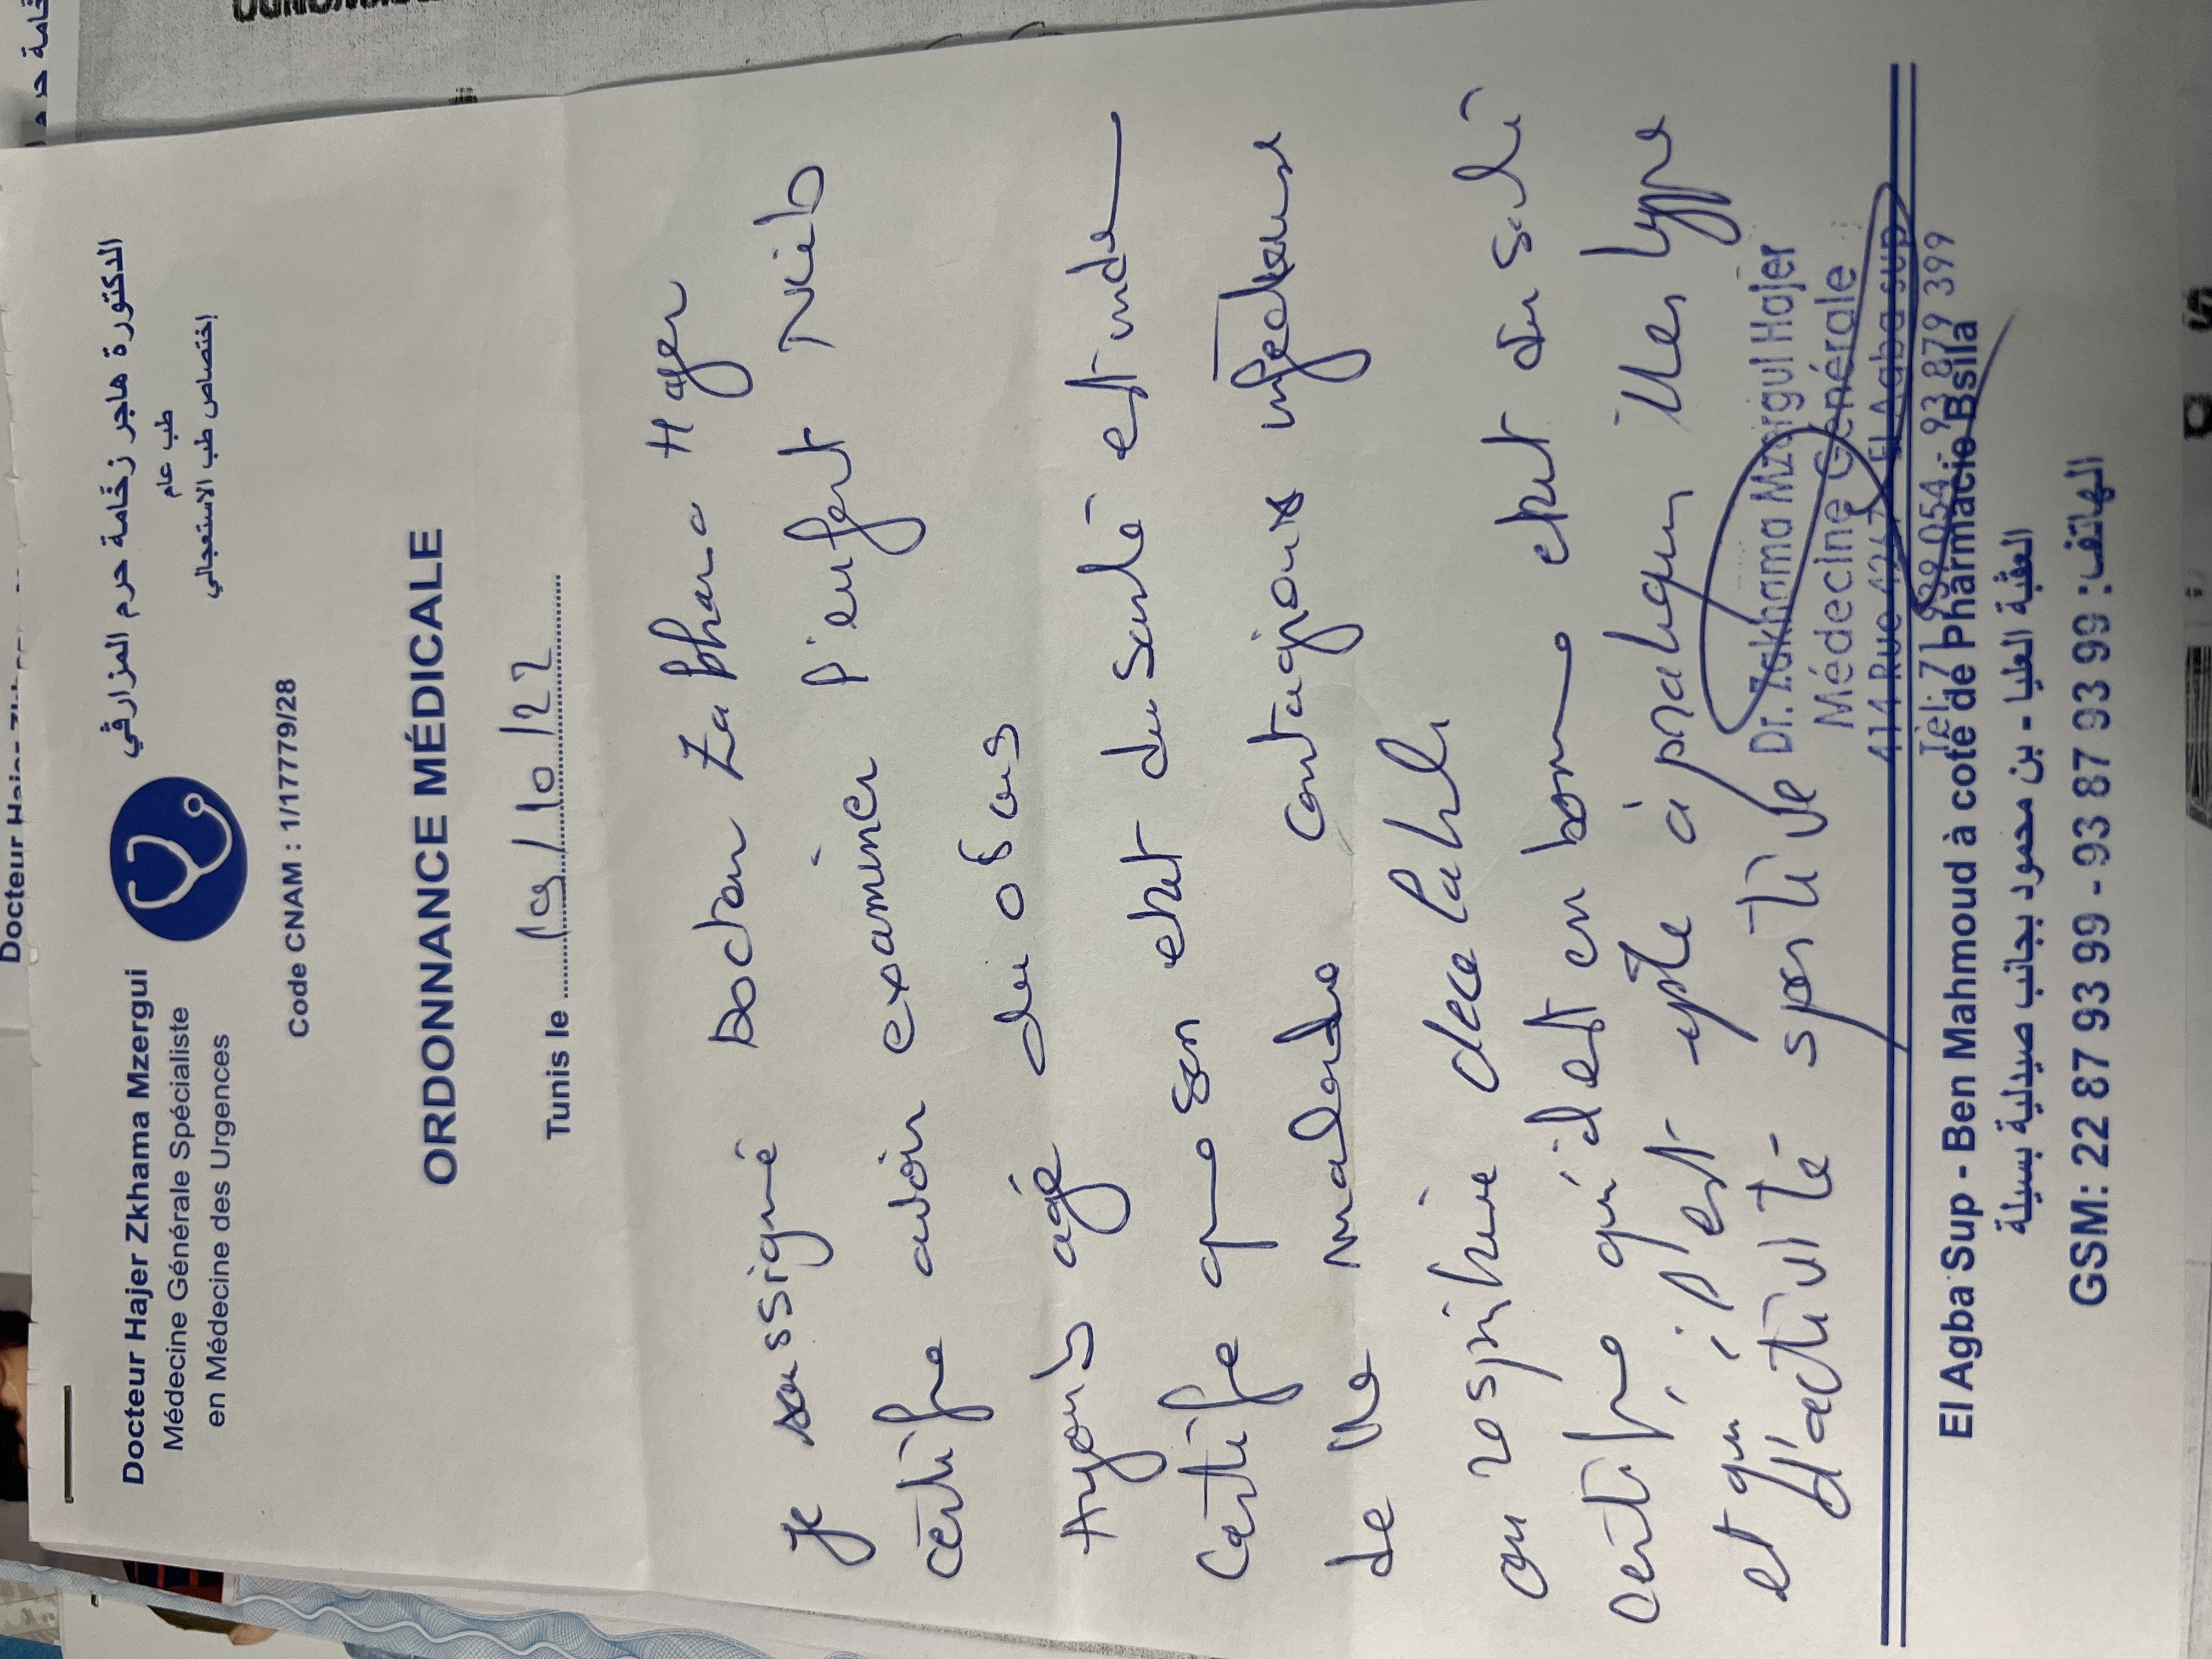 Docteur Hajer Zkhama Mzergui
Médecine Générale Spécialiste
en Médecine des Urgences
الدكتورة هاجر زخامة حرم المزارقي
طب عام
إختصاص طب الاستعجالي
Code CNAM : 1/17779/28
ORDONNANCE MÉDICALE
Tunis le 19/10/22
Je soussigné Docteur Zakhama Hajer
certifie avoir examiner l'enfant
Ayants agé de 08 ans
Certifie que son etat de santé est inde
de tte maladie contagions infectieuse
ou respiratoire decelable
certifie qu'il est en bonne etat de santé
et qu'il est apte à pratiquer tter type
d'activité sportive
Dr. Zakhama Mzergui Hajer
Médecine Générale
414 Rue El Agba sup
Tél: 71 939 054 - 93 879 399
El Agba Sup - Ben Mahmoud à coté de Pharmacie Bsila
العقبة العليا - بن محمود بجانب صيدلية بسيلة
GSM: 22 87 93 99 - 93 87 93 99 :الهاتف
Docteur